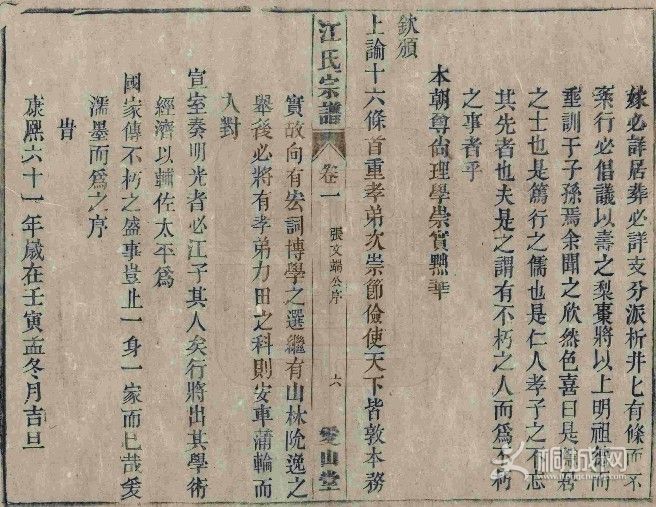 嫁必詳居葬必詳支分派析井匕有條而不
紊行必倡議以壽之梨棗將以上明祖德而
垂訓于子孫焉余聞之欣然色喜曰是讀書
之士也是篤行之儒也是仁人孝子之不忘
其先者也夫是之謂有不朽之人而爲不朽
之事者乎
本朝尊尙理學崇實黜華
欽頒
上諭十六條首重孝弟次崇節儉使天下皆敦本務
江氏宗譜
卷一
張文端公序
六
愛山堂
實故向有宏詞博學之選繼有山林隠逸之
舉後必將有孝弟力田之科則安車蒲輪而
入對
宣室奏明光者必江子其人矣行將出其學術
經濟以輔佐太平爲
國家傳不朽之盛事豈止一身一家而已哉爰
濡墨而爲之序
旹
康熙六十一年歲在壬寅孟冬月吉旦
桐城网